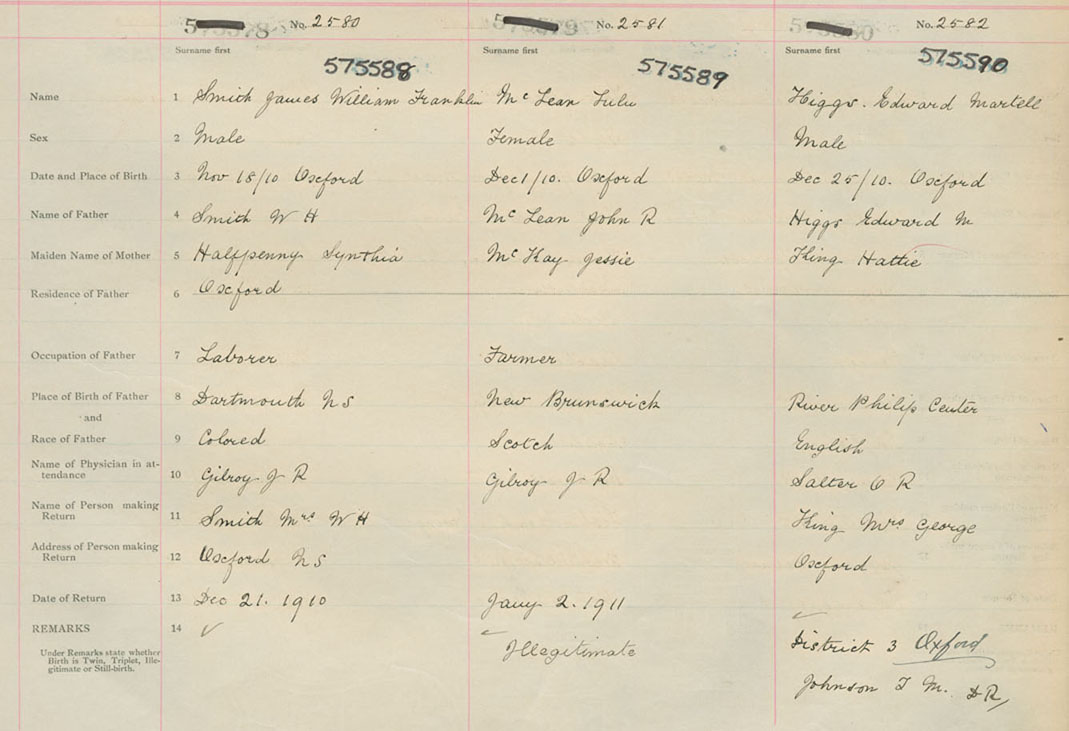 No. 2580 No. 2581 No. 2582
Surname first Surname first Surname first
575588 575589 575590
Name 1 Smith James William Franklin Mc Lean Lulu Higgs. Edward Martell
Sex 2 Male Female Male
Date and Place of Birth 3 Nov 18/10 Oxford Dec 1/10. Oxford Dec 25/10. Oxford
Name of Father 4 Smith W H Mc Lean John R Higgs Edward M
Maiden Name of Mother 5 Halfpenny Synthia Mc Kay Jessie King Hattie
Residence of Father 6 Oxford
Occupation of Father 7 Laborer Farmer
Place of Birth of Father 8 Dartmouth N S New Brunswick River Philip Center
and
Race of Father 9 Colored Scotch English
Name of Physician in at-
tendance 10 Gilroy J R Gilroy J R Salter O R
Name of Person making
Return 11 Smith Mrs W H King Mrs George
Address of Person making
Return 12 Oxford N S Oxford
Date of Return 13 Dec 21. 1910 Jany 2. 1911
REMARKS 14 ✓
Under Remarks state whether
Birth is Twin, Triplet, Ille-
gitimate or Still-birth.
Illegitimate District 3 Oxford
Johnson T M. D R,